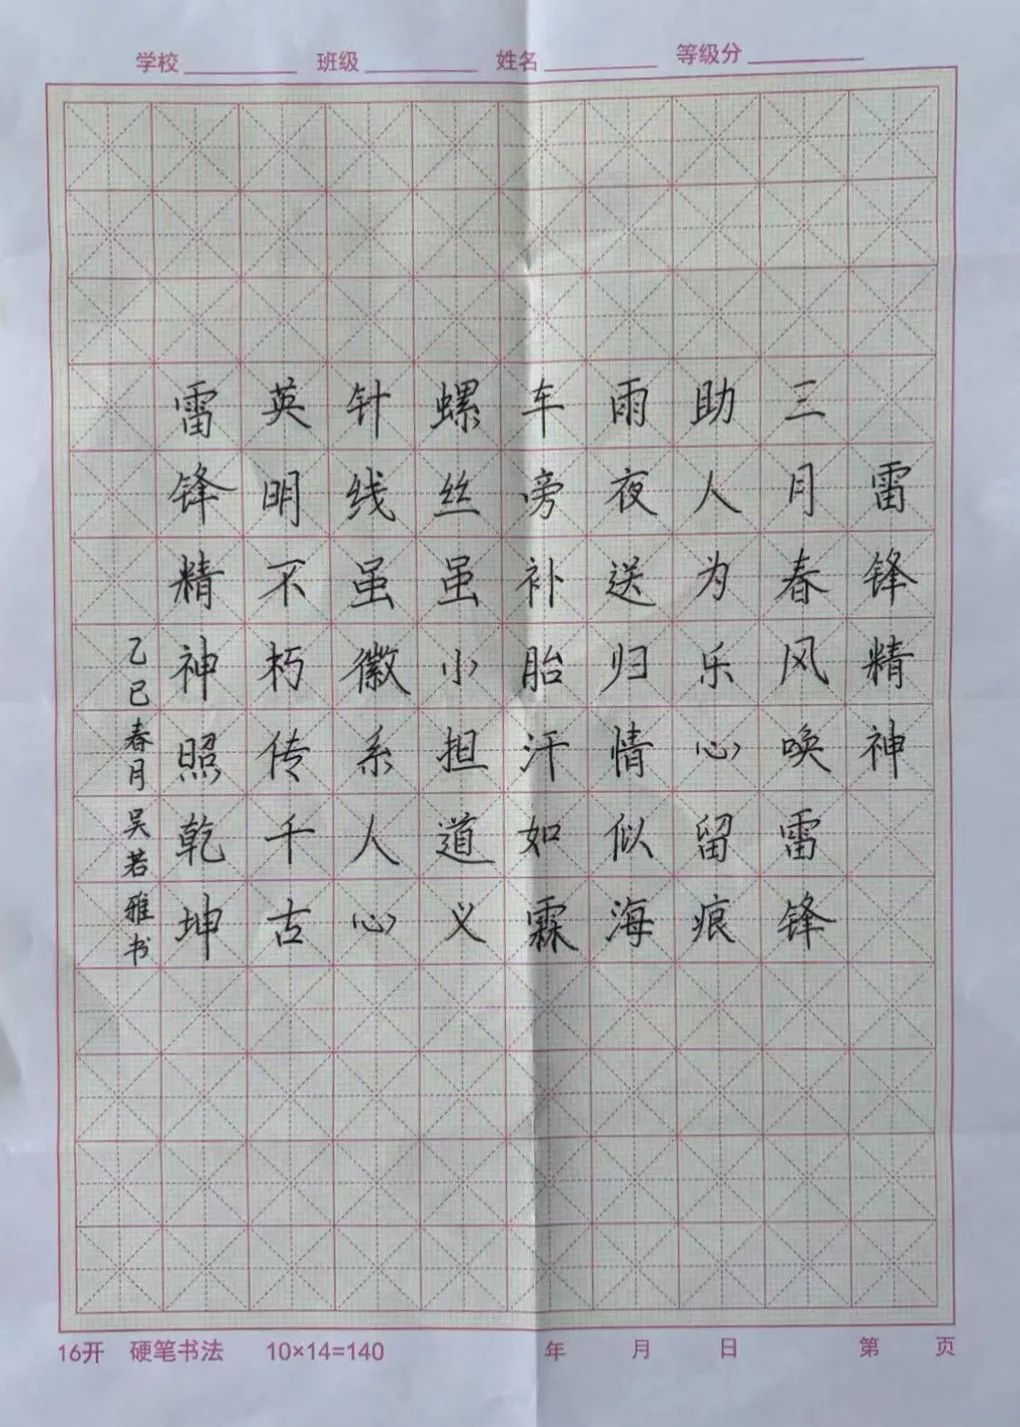 学校 班级 姓名 等级分
雷锋精神
三月春风唤雷锋
助人为乐心留痕
雨夜送归情似海
车旁补胎汗如霖
螺丝虽小担道义
针线虽徽系人心
英明不朽传千古
雷锋精神照乾坤
乙巳春月吴若雅书
16开 硬笔书法 10×14=140 年 月 日 第 页